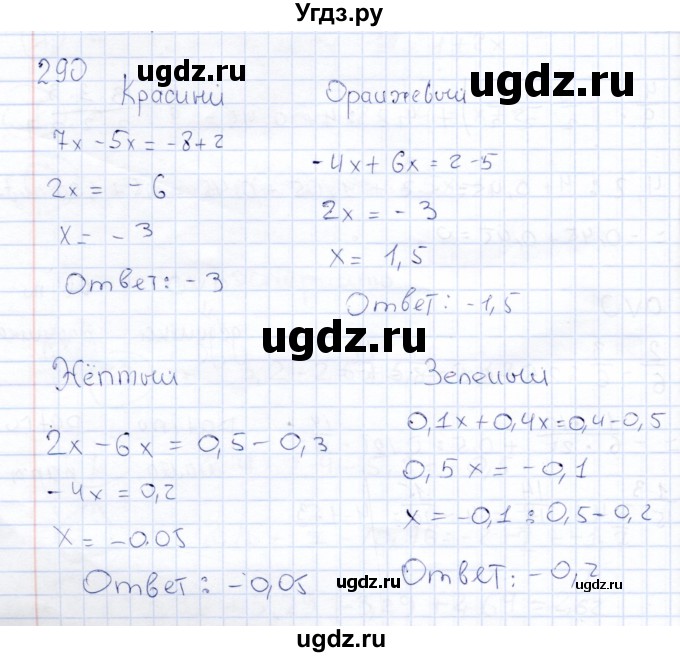 Угдз.ру
290
ugdz.ru
Красный
Оранжевый
ugdz.ru
7x - 5x = -8 + 2
2x = - 6
x = - 3
Ответ: - 3
-4x + 6x = 2 - 5
2x = - 3
x = 1,5
Ответ: -1,5
ugdz.ru
Жёлтый
Зеленый
2x - 6x = 0,5 - 0,3
-4x = 0,2
x = -0.05
Ответ: -0,05
0,1x + 0,4x = 0,4 - 0,5
0,5 x = -0,1
x = -0,1 : 0,5 - 0,2
Ответ: -0,2
ugdz.ru
ugdz.ru
ugdz.ru